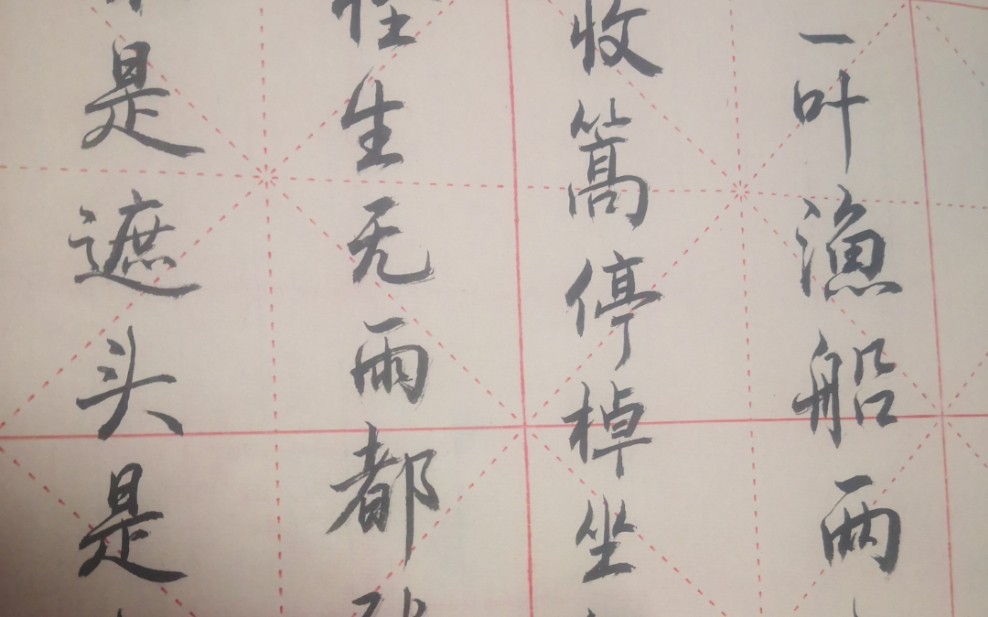 一叶渔船两
收篙停棹坐
生无雨都
是遮头是